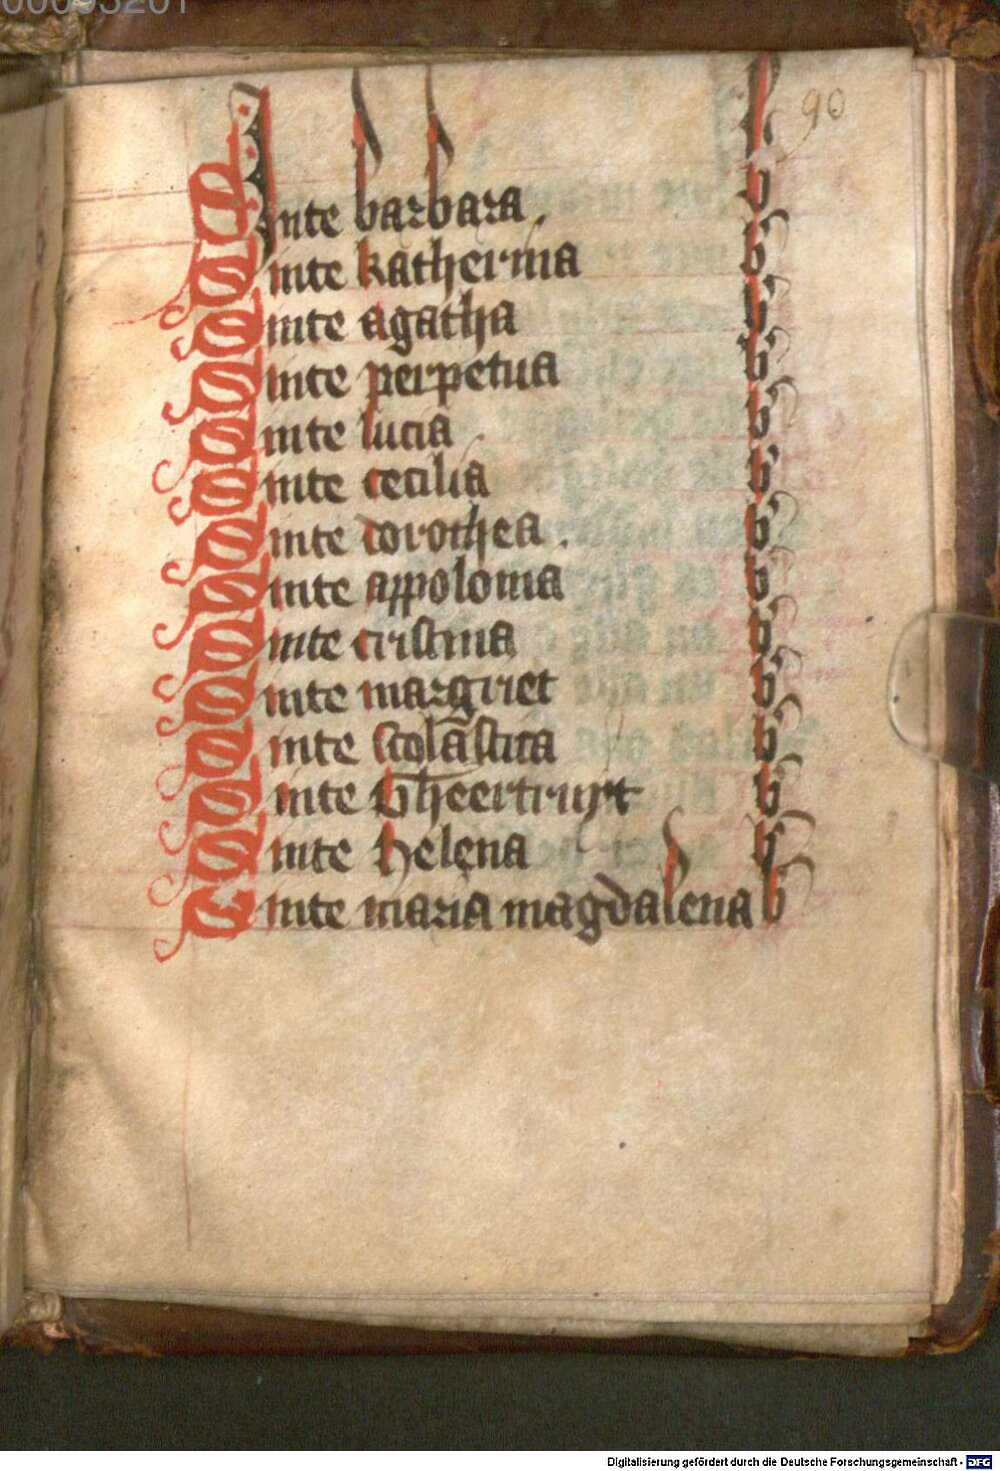 90
Sinte barbara. b
Sinte katherina b
Sinte agatha b
Sinte perpetua b
Sinte lucia b
Sinte cecilia b
Sinte dorothea. b
Sinte appolonia b
Sinte cristina b
Sinte margriet b
Sinte scolãstica b
Sinte Gheertruyt b
Sinte helena b
Sinte maria magdalena b
Digitalisierung gefördert durch die Deutsche Forschungsgemeinschaft - DFG